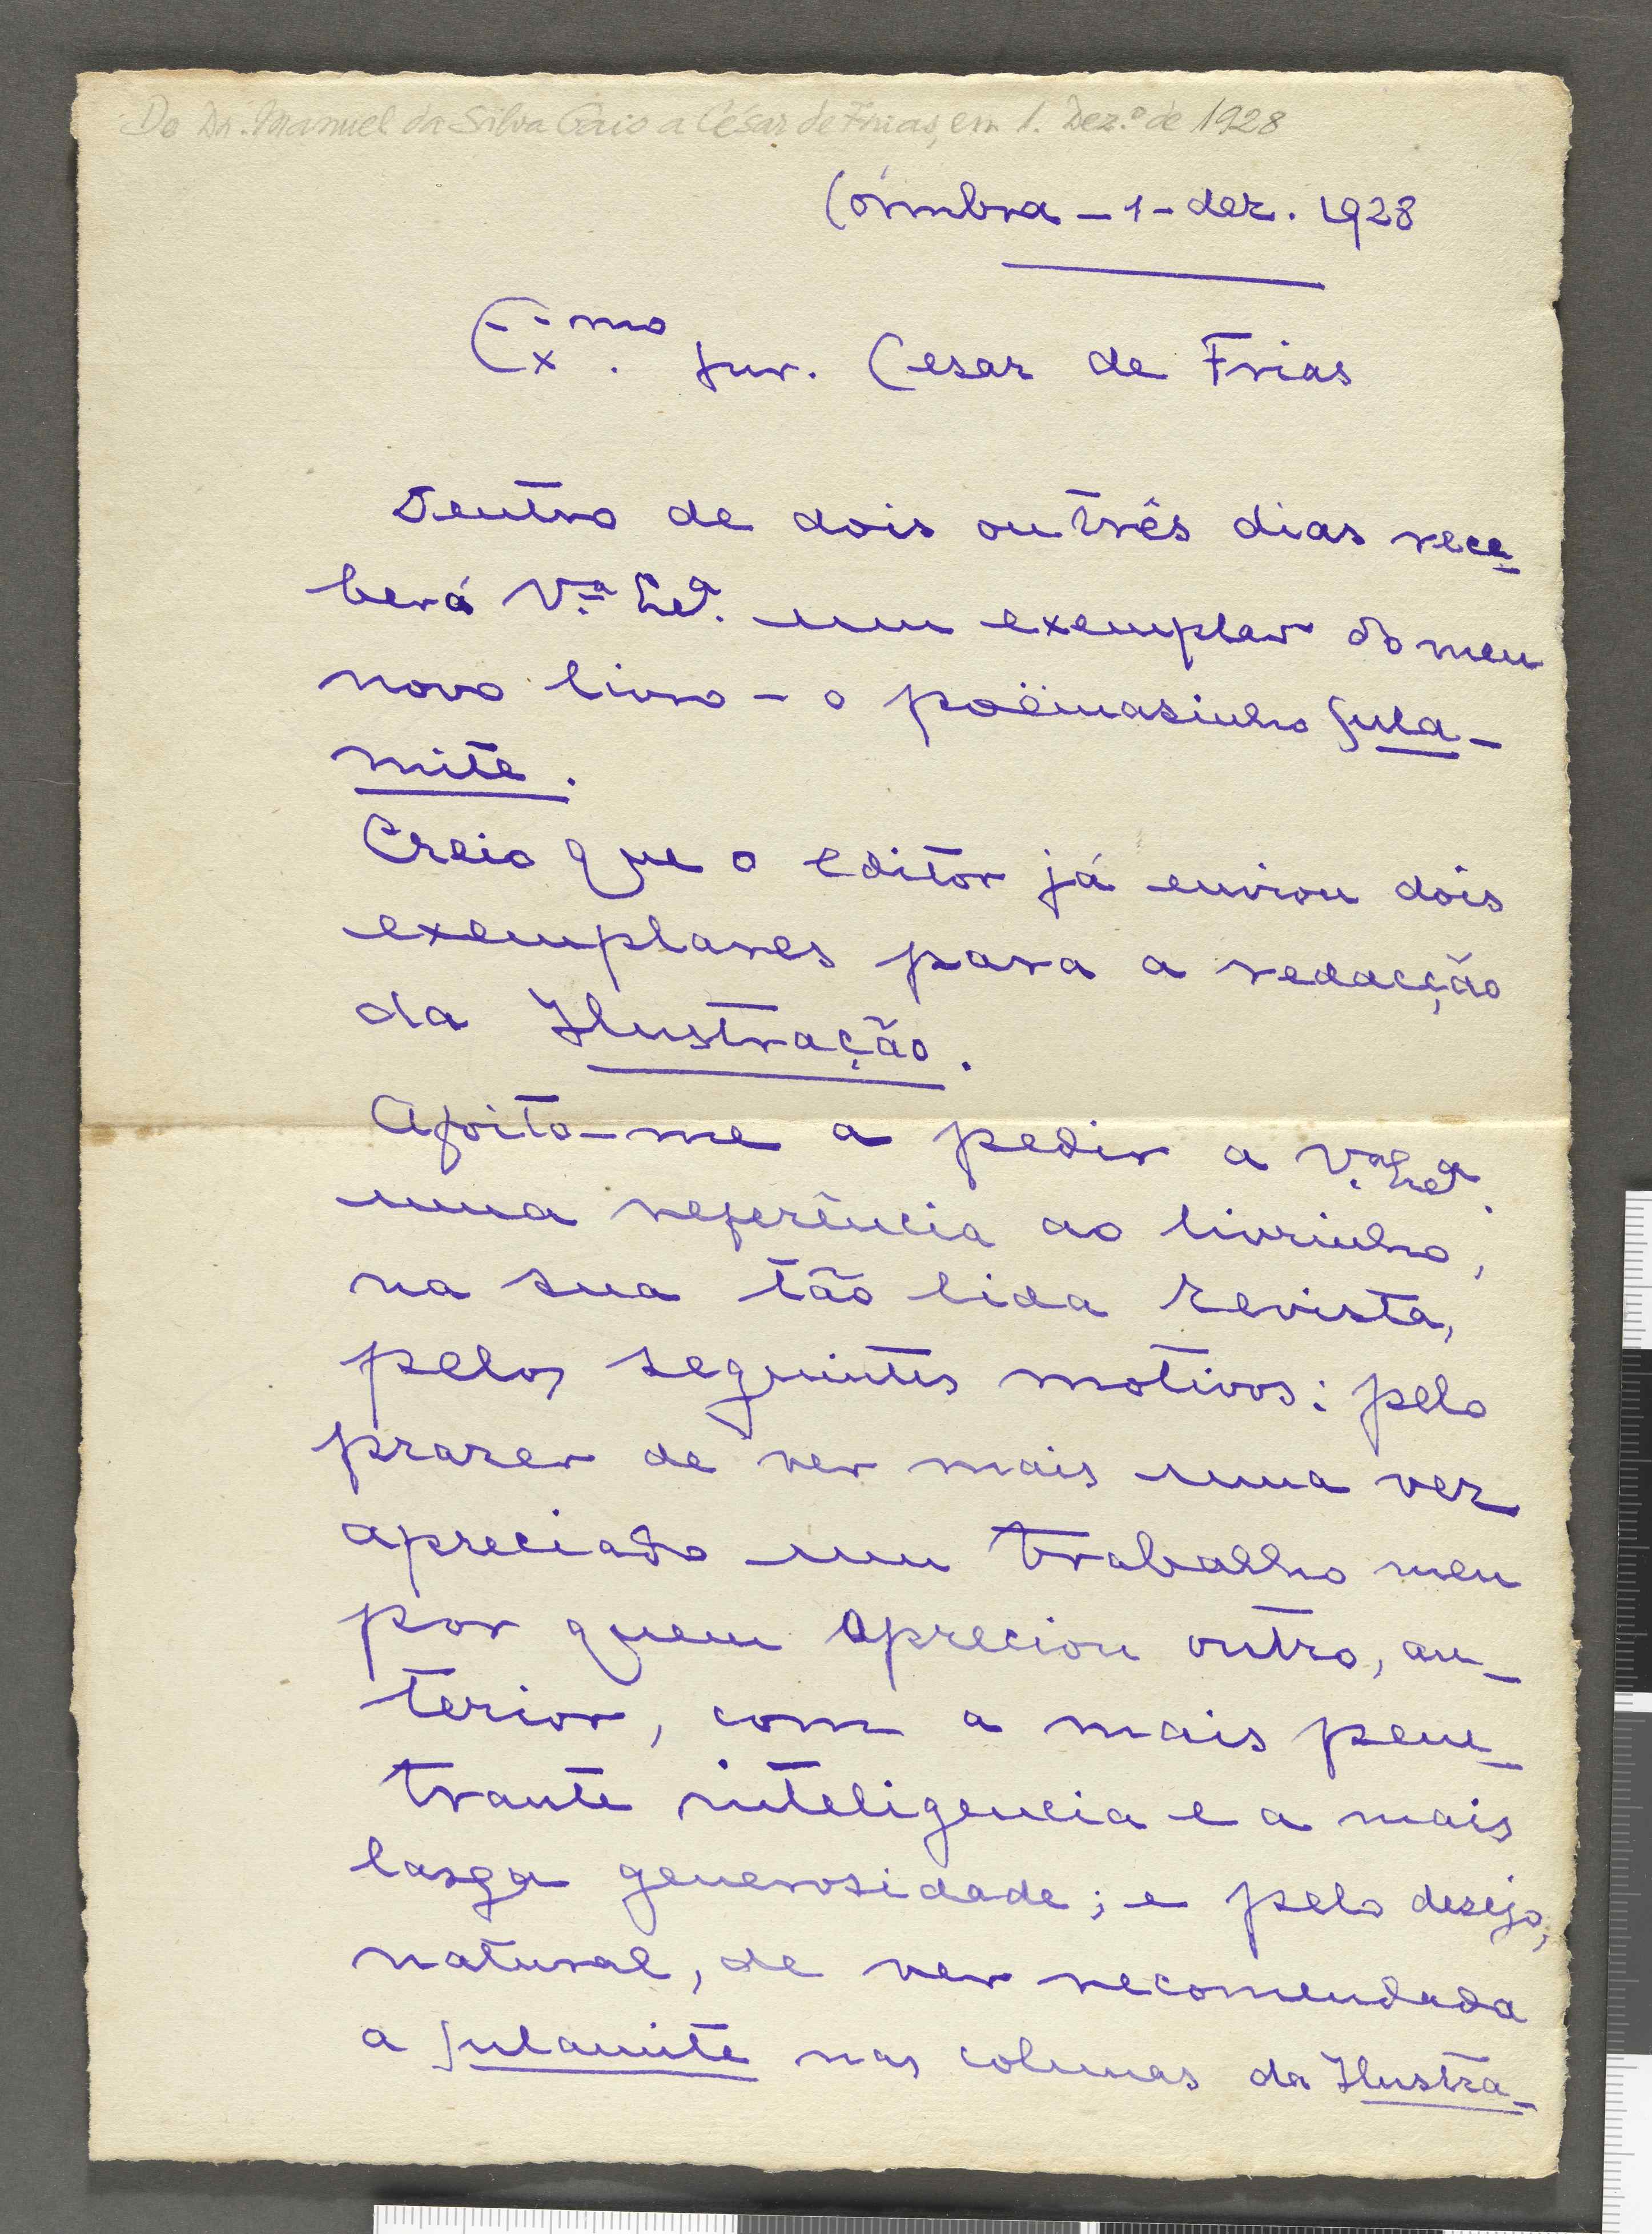 De Dr. Manuel da Silva Gaio a César de Frias, em 1. Dez.º de 1928
Coimbra - 1 - dez. 1928
Ex.mo Snr. Cesar de Frias
Dentro de dois ou três dias rece-
berá V.ª Ex.ª um exemplar do meu
novo livro - o poëmasinho Sula-
mite.
Creio que o editor já enviou dois
exemplares para a redacção
da Ilustração.
Afoito-me a pedir a V.ª Ex.ª
uma referência ao livrinho,
na sua tão lida revista,
pelos seguintes motivos: pelo
prazer de ver mais uma vez
apreciado um trabalho meu
por quem apreciou outro, an-
terior, com a mais pene-
trante inteligencia e a mais
larga generosidade; e pelo desejo,
natural, de ver recomendada
a Sulamite nas colunas da Ilustra-